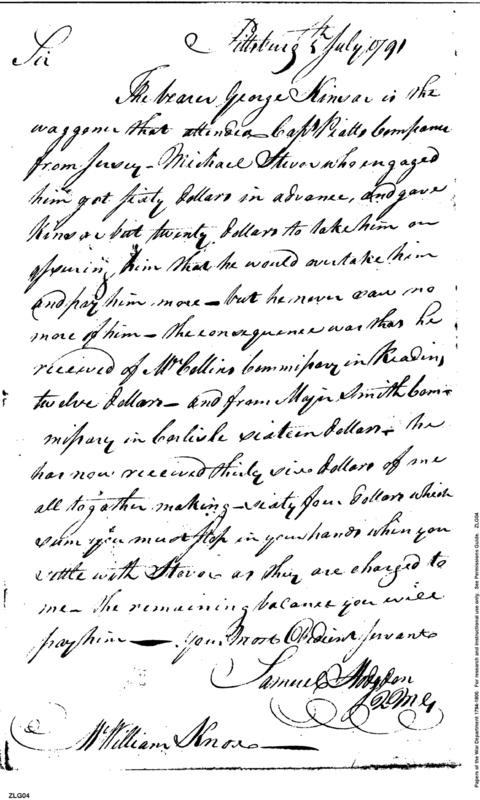 Pittsburg 5th July 1791
Sir
The bearer George Kinsar is the
waggoner that attended Capt Piatts Companie
from Jersey - Michael Stever who engaged
him got sixty dollars in advance, and gave
Kinsar but twenty dollars to take him on
assuring him that he would overtake him
and pay him more - but he never saw no
more of him - the consequence was that he
received of Mr Collins Commissary in Reading
twelve dollars - and from Major Smith Com-
missary in Carlisle sixteen dollars - he
has now received thirty six dollars of me
all together making - sixty four Dollars which
sum you must stop in your hands when you
settle with Stever as they are charged to
me - the remaining balance you will
pay him — Your Most Obedient Servant
Samuel Hodgdon
QMG
Mr William Knox
Papers of the War Department 1784-1800. For research and instructional use only. See Permissions Guide. ZLG04
ZLG04